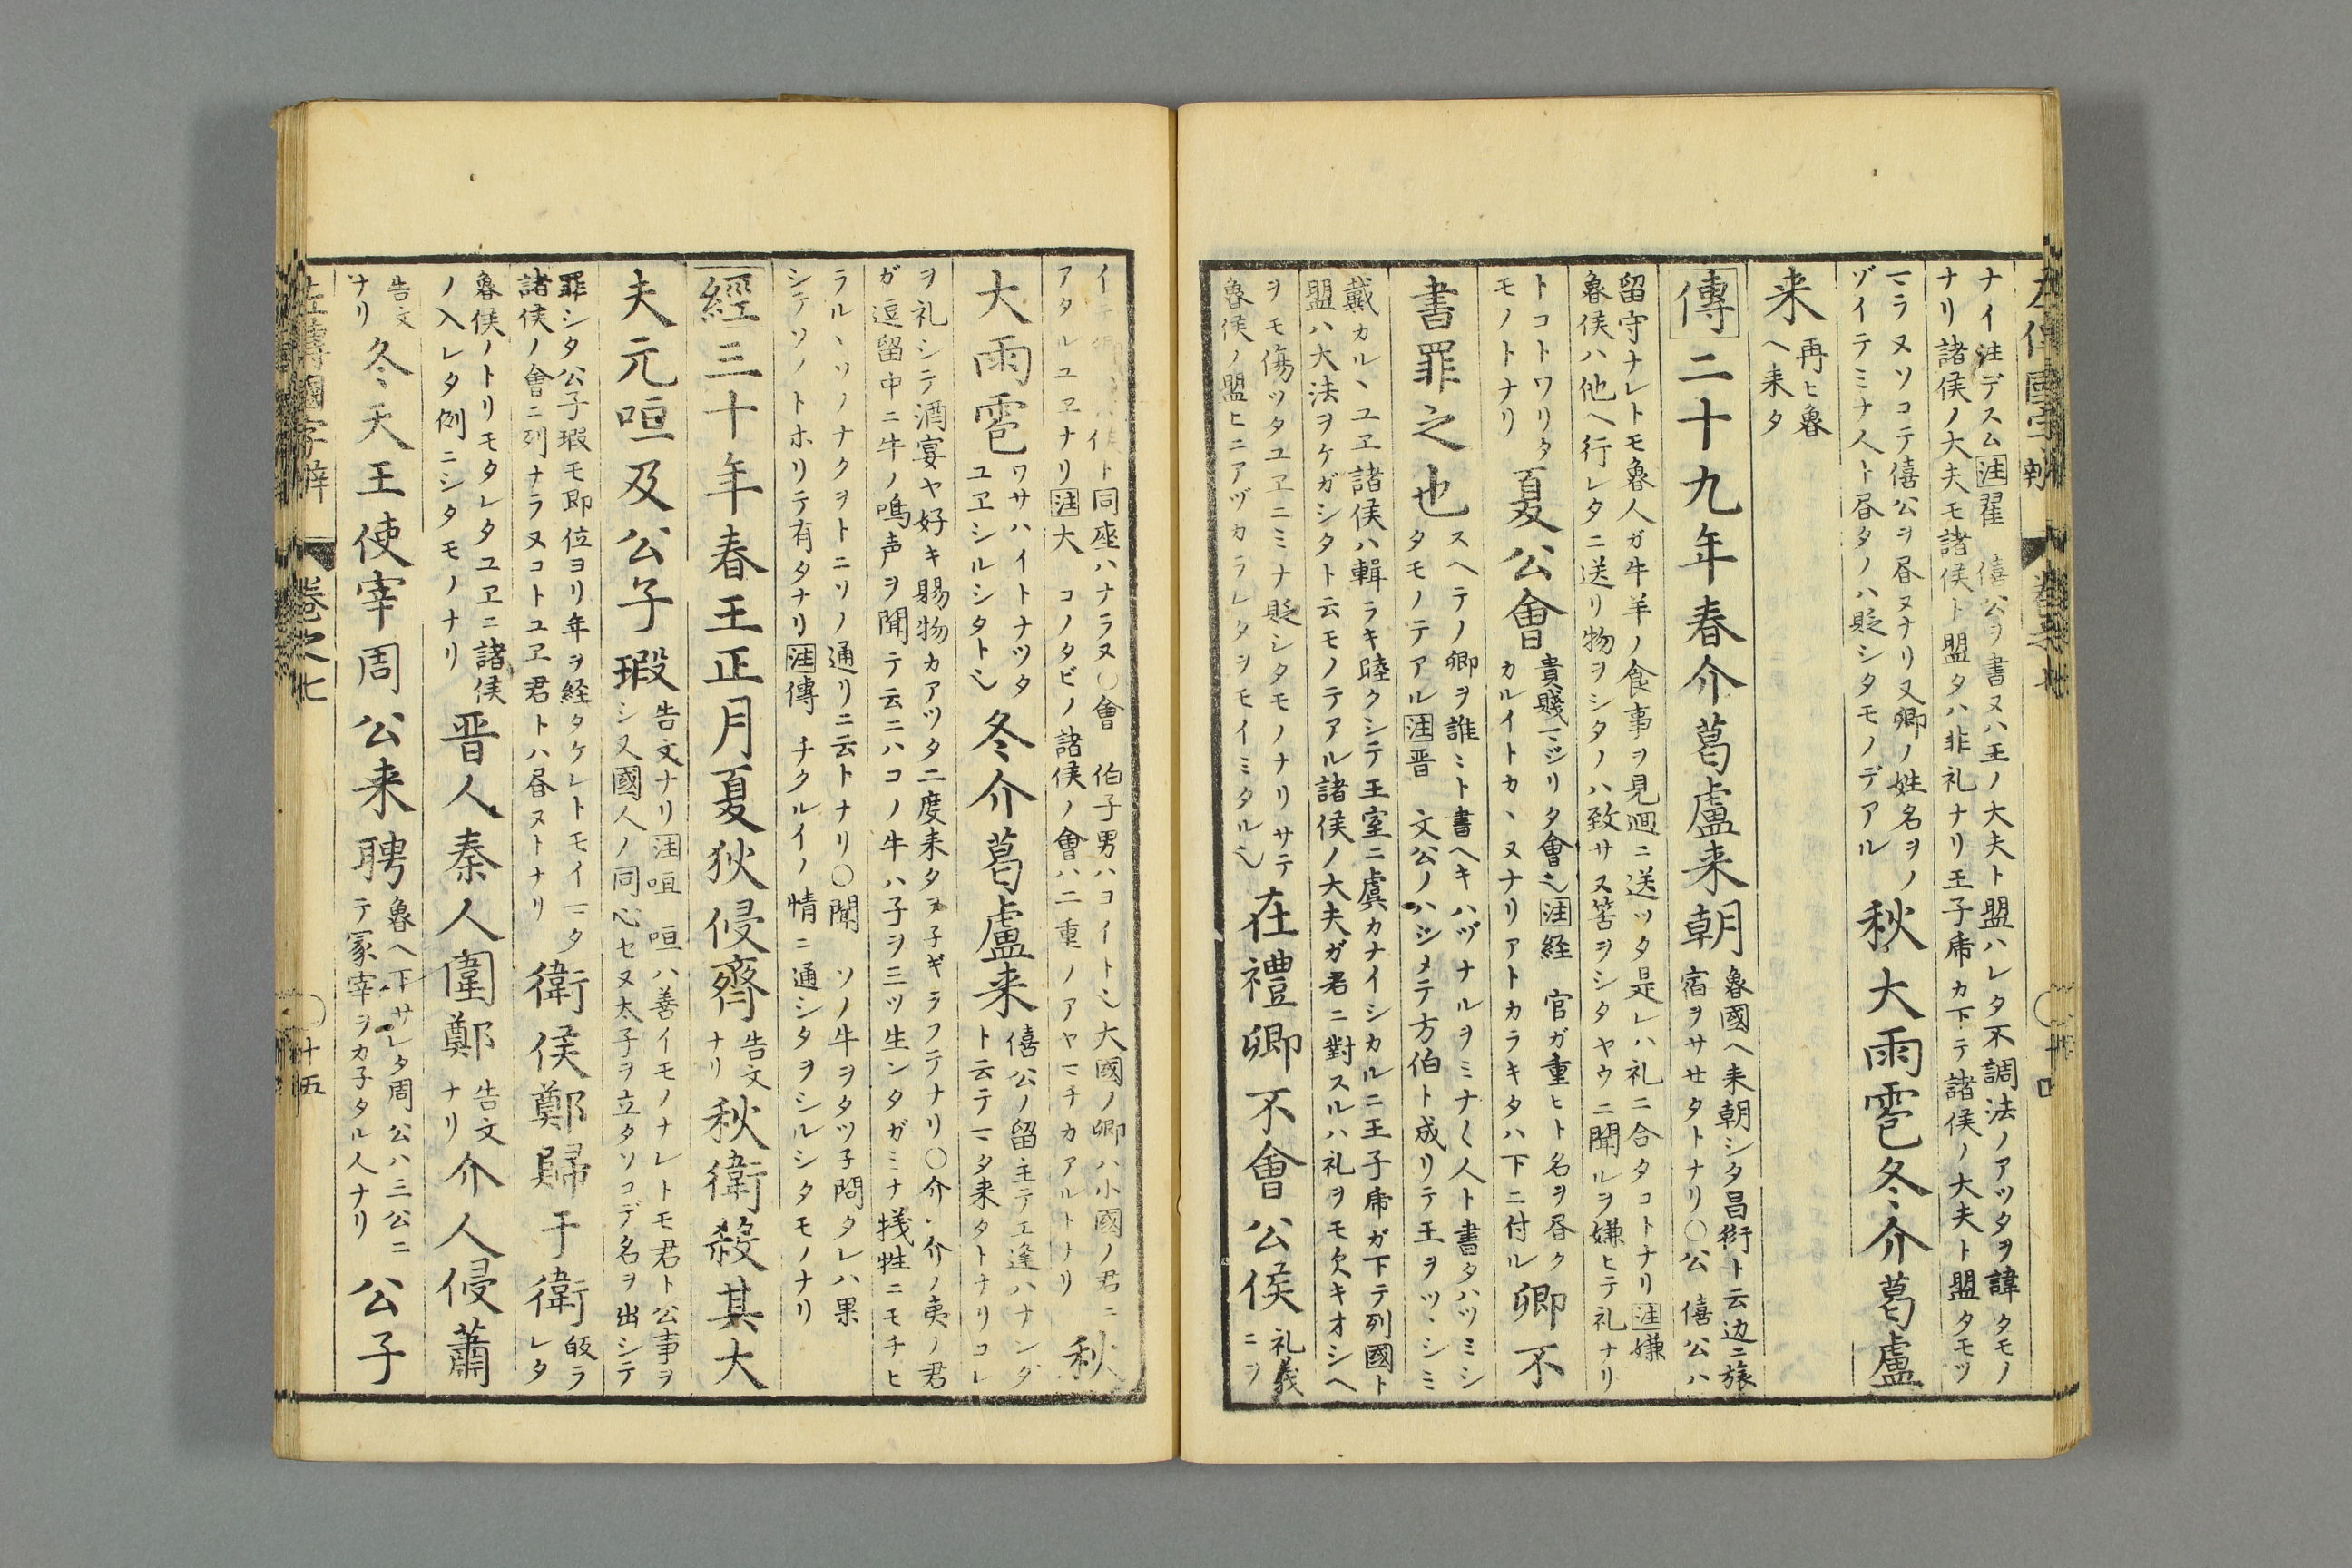 ナイ注デスム注翟 僖公ヲ書ヌハ王ノ大夫ト盟ハレタ不調法ノアツタヲ諱タモノ
ナリ諸侯ノ大夫モ諸侯ト盟タハ非礼ナリ王子虎カ下テ諸侯ノ大夫ト盟タモツ
マラヌソコテ僖公ヲ昏ヌナリ又卿ノ姓名ヲノ
ゾイテミナ人ト昏タノハ貶シタモノデアル
秋大雨雹冬介葛盧
来
再ヒ魯
ヘ来タ
傳二十九年春介葛盧来朝
魯國ヘ来朝シタ昌衍ト云辺ニ旅
宿ヲサセタトナリ〇公 僖公ハ
留守ナレトモ魯人ガ牛羊ノ食事ヲ見廻ニ送ツタ是レハ礼ニ合タコトナリ注嫌
魯侯ハ他ヘ行レタニ送リ物ヲシタノハ致サヌ筈ヲシタヤウニ聞ルヲ嫌ヒテ礼ナリ
トコトワリタ
モノトナリ
夏公會
貴賤マジリタ會也注経 官ガ重ヒト名ヲ昏ク
カルイトカヽヌナリアトカラキタハ下ニ付ル
卿不
書罪之也
スヘテノ卿ヲ誰ミト書ヘキハヅナルヲミナ〱人ト書タハツミシ
タモノテアル注晋 文公ノハジメテ方伯ト成リテ王ヲツヽシミ
戴カルヽユヱ諸侯ハ輯ラキ睦クシテ王室ニ虞カナイシカルニ王子虎ガ下テ列國ト
盟ハ大法ヲケガシタト云モノテアル諸侯ノ大夫ガ君ニ對スルハ礼ヲモ欠キオシヘ
ヲモ傷ツタユヱニミナ貶シタモノナリサテ
魯侯ノ盟ヒニアヅカラレタヲモイミタル也
在禮卿不會公侯
礼義
ニヲ
ト同座ハナラヌ〇會 伯子男ハヨイト也大國ノ卿ハ小國ノ君ニ
アタルユヱナリ注大 コノタビノ諸侯ノ會ハ二重ノアヤマチカアルトナリ
秋
大雨雹
ワサハイトナツタ
ユヱシルシタト也
冬介葛盧来
僖公ノ留主テエ逢ハナンダ
ト云テマタ来タトナリコレ
ヲ礼シテ酒宴ヤ好キ賜物カアツタ二度来タヌ子ギラフテナリ〇介 介ノ夷ノ君
ガ逗留中ニ牛ノ鳴声ヲ聞テ云ニハコノ牛ハ子ヲ三ツ生ンタガミナ犠牲ニモチヒ
ラルヽソノナクヲトニソノ通リニ云トナリ〇聞 ソノ牛ヲタツ子問タレハ果
シテソノトホリテ有タナリ注傳 チクルイノ情ニ通シタヲシルシタモノナリ
經三十年春王正月夏狄侵齊
告文
ナリ
秋衛殺其大
夫元咺及公子瑕
告文ナリ注咺 咺ハ善イモノナレトモ君ト公事ヲ
シ又國人ノ同心セヌ太子ヲ立タソコデ名ヲ出シテ
罪シタ公子瑕モ即位ヨリ年ヲ経タケレトモイマタ
諸侯ノ會ニ列ナラヌコトユヱ君トハ昏ヌトナリ
衛侯鄭歸于衛
皈ラ
レタ
魯侯ノトリモタレタユヱニ諸侯
ノ入レタ例ニシタモノナリ
晋人秦人圍鄭
告文
ナリ
介人侵蕭
告文
ナリ
冬天王使宰周公来聘
魯ヘ下サレタ周公ハ三公ニ
テ冢宰ヲカ子タル人ナリ
公子
左傳國字解 卷之七 十五